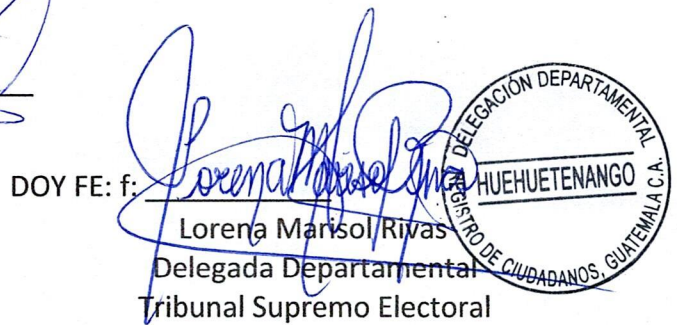 DOY FE: f: Lorena Marisol Rivas
Lorena Marisol Rivas
Delegada Departamental
Tribunal Supremo Electoral
DELEGACIÓN DEPARTAMENTAL
HUEHUETENANGO
REGISTRO DE CIUDADANOS, GUATEMALA C.A.